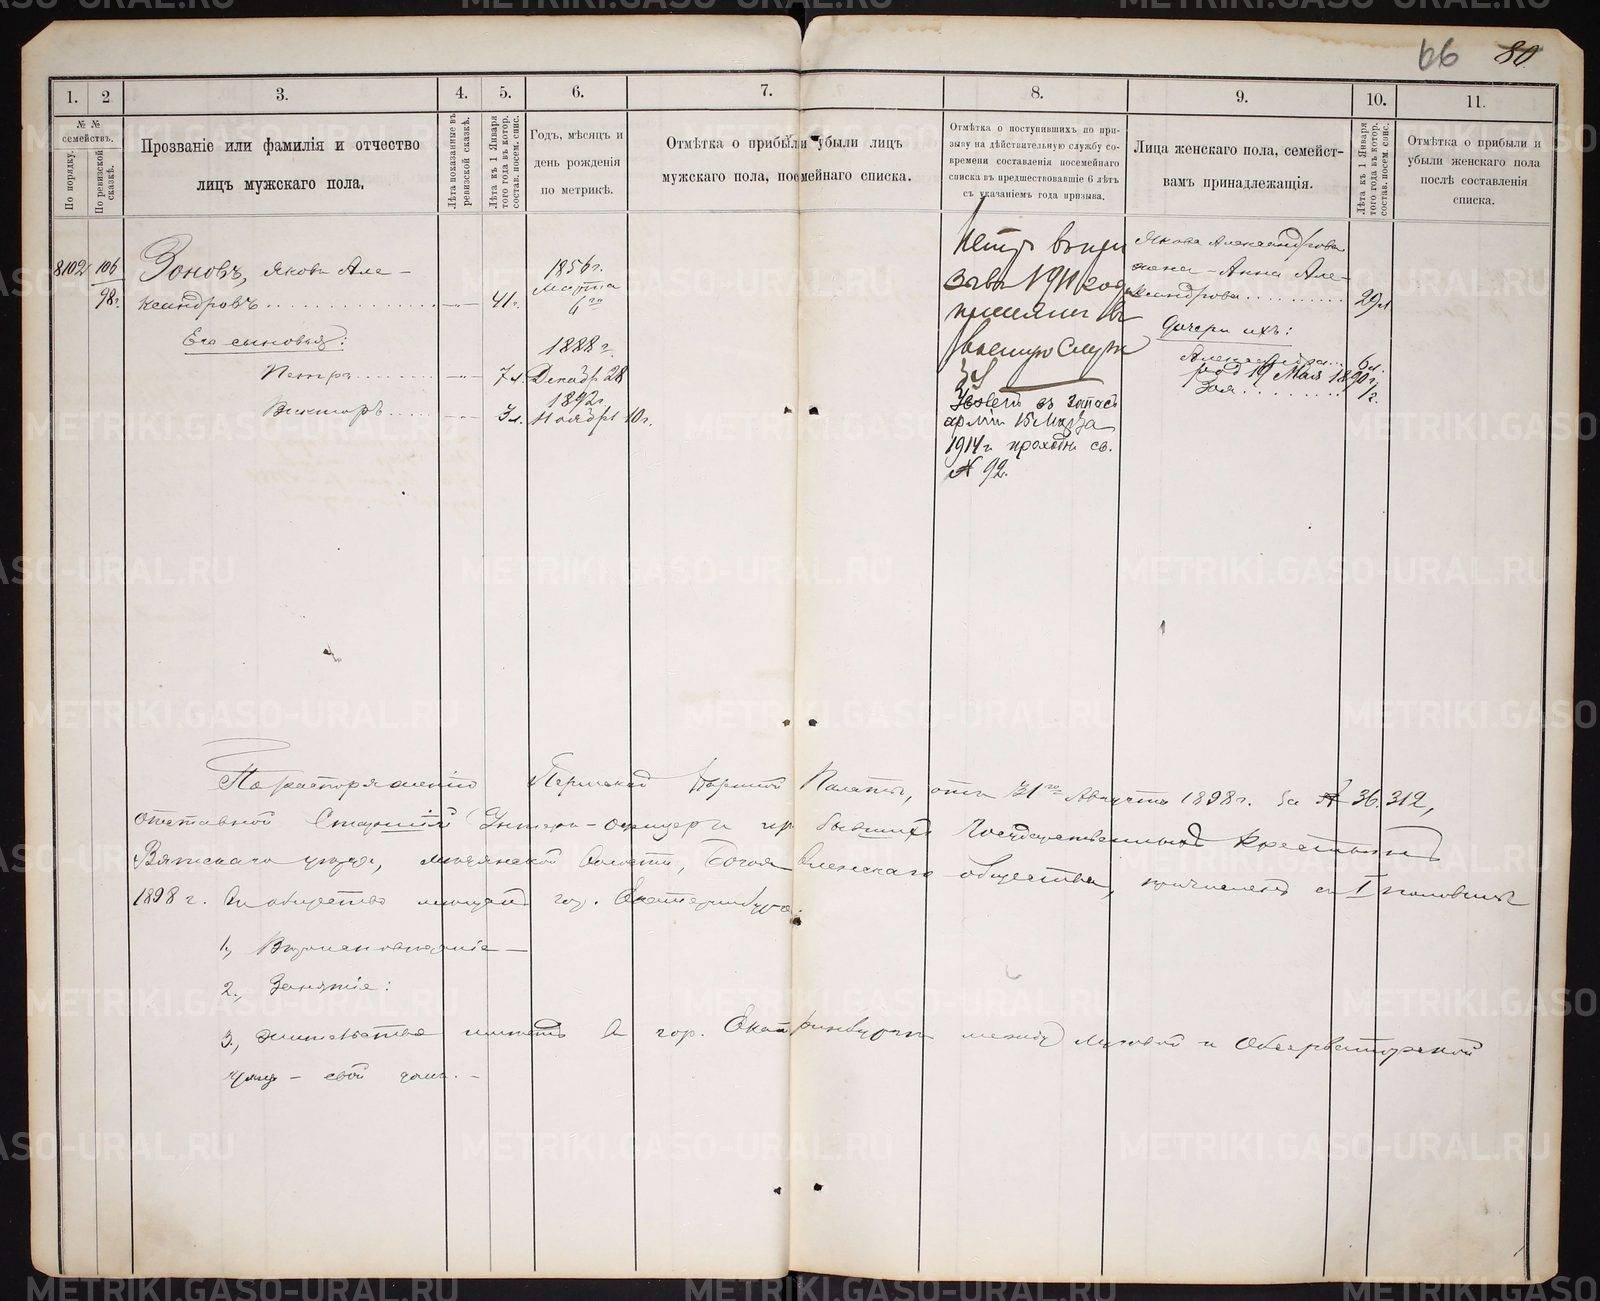 66 80
1. 2 3. 4. 5. 6. 7. 8. 9. 10. 11.
№ №
семействъ.
По порядку.
По ревизской
сказкѣ.
Прозваніе или фамилія и отчество
лицъ мужскаго пола.
Лѣта показанные въ
ревизской сказкѣ.
Лѣта къ 1 Января
того года въ котор.
состав. посем. спис.
Годъ, мѣсяцъ и
день рожденія
по метрикѣ.
Отмѣтка о прибыли убыли лицъ
мужскаго пола, посмейнаго списка.
Отмѣтка о поступившихъ по при-
зыву на дѣйствительную службу со-
времени составленія посемейнаго
списка въ предшествовавшіе 6 лѣтъ
съ указаніемъ года призыва.
Лица женскаго пола, семейст-
вамъ принадлежащія.
Лѣта къ 1 Января
того года въ котор.
состав. посем. спис.
Отмѣтка о прибыли и
убыли женскаго пола
послѣ составленія
списка.
8102 106
98г.
Зоновъ, Яковъ Але-
ксандровъ 41г.
1856г.
Марта
4го
Его сыновья:
Петръ 7л.
1888г.
Декабр 28
Викторъ 3л.
1892г.
Ноября 10г.
Петръ въ при
зывъ 1911 года
принятъ въ
военную служ
Уволенъ въ запасъ
арміи 15 Марта
1914г. проходн св.
№ 92.
Якова Александрова
жена - Анна Але-
ксандрова 29л
Дочери ихъ:
Александра 6л.
род 19 Мая 1890г.
Зоя 1г.
По распоряженію Пермской Казенной Палаты, отъ 31го Августа 1898г. за № 36.312,
отставной Старшій Унтеръ-офицеръ изъ бывшихъ Государственныхъ крестьянъ
Вятскаго уѣзда, волости, общества, причисленъ съ I половины
1898 г. въ общество мѣщанъ гор. Екатеринбурга.
1., Вѣроисповѣданіе -
2., Занятіе:
3., жительство имѣетъ въ гор. Екатеринбургѣ между Луговой и Обсерваторской
улиц - свой домъ. -
METRIKI.GASO-URAL.RU